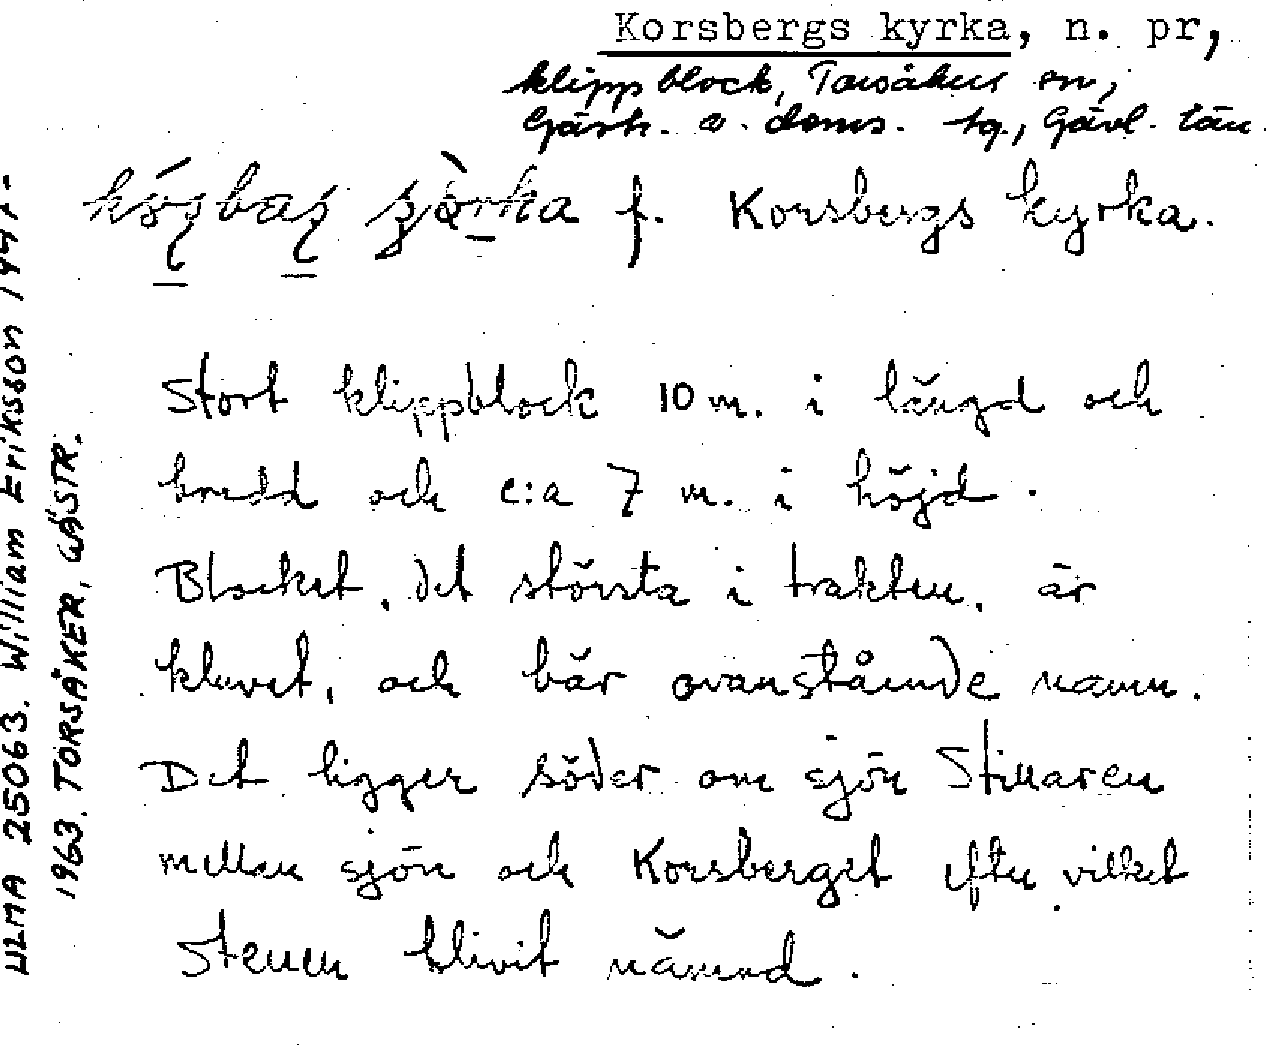 Korsbergs kyrka, n. pr,
klippblock, Torsåkers sn,
Gästr. ö. doms. tg., Gävl. län.
f. Korsbergs kyrka.
Stort klippblock 10 m. i längd och
bredd och c:a 7 m. i höjd.
Blocket, det största i trakten, är
kluvet, och bär ovanstående namn.
Det ligger söder om sjön Stillaren
mellan sjön och Korsberget efter vilket
stenen blivit nämnd.
ULMA 25063. William Eriksson
1963. TORSÅKER, GÄSTR.